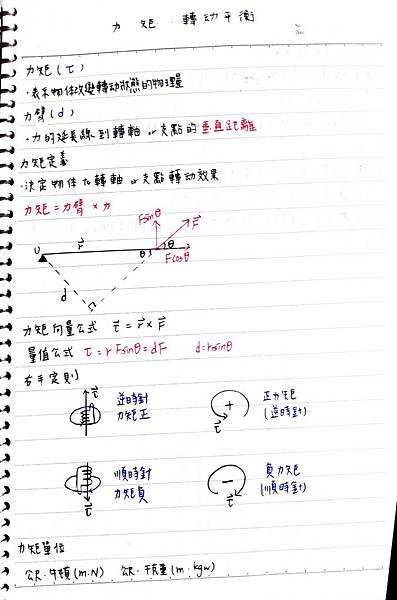 力矩．轉動平衡
力矩(τ)
・表示物体改變轉動狀態的物理量
力臂(d)
・力的延長線到轉軸 or 支點的垂直距離
力矩定義
・決定物体 to 轉軸 or 支點轉動效果
力矩=力臂×力
Fsinθ
F⃗
θ
O
r⃗
θ
Fcosθ
d
力矩向量公式 τ⃗=r⃗×F⃗
量值公式 τ=rFsinθ=dF d=rsinθ
右手定則
τ⃗
逆時針
力矩正
+
τ⃗
正力矩
(逆時針)
順時針
力矩負
τ⃗
−
τ⃗
負力矩
(順時針)
力矩單位
公尺．牛頓(m·N) 公尺．千克重(m·kgw)